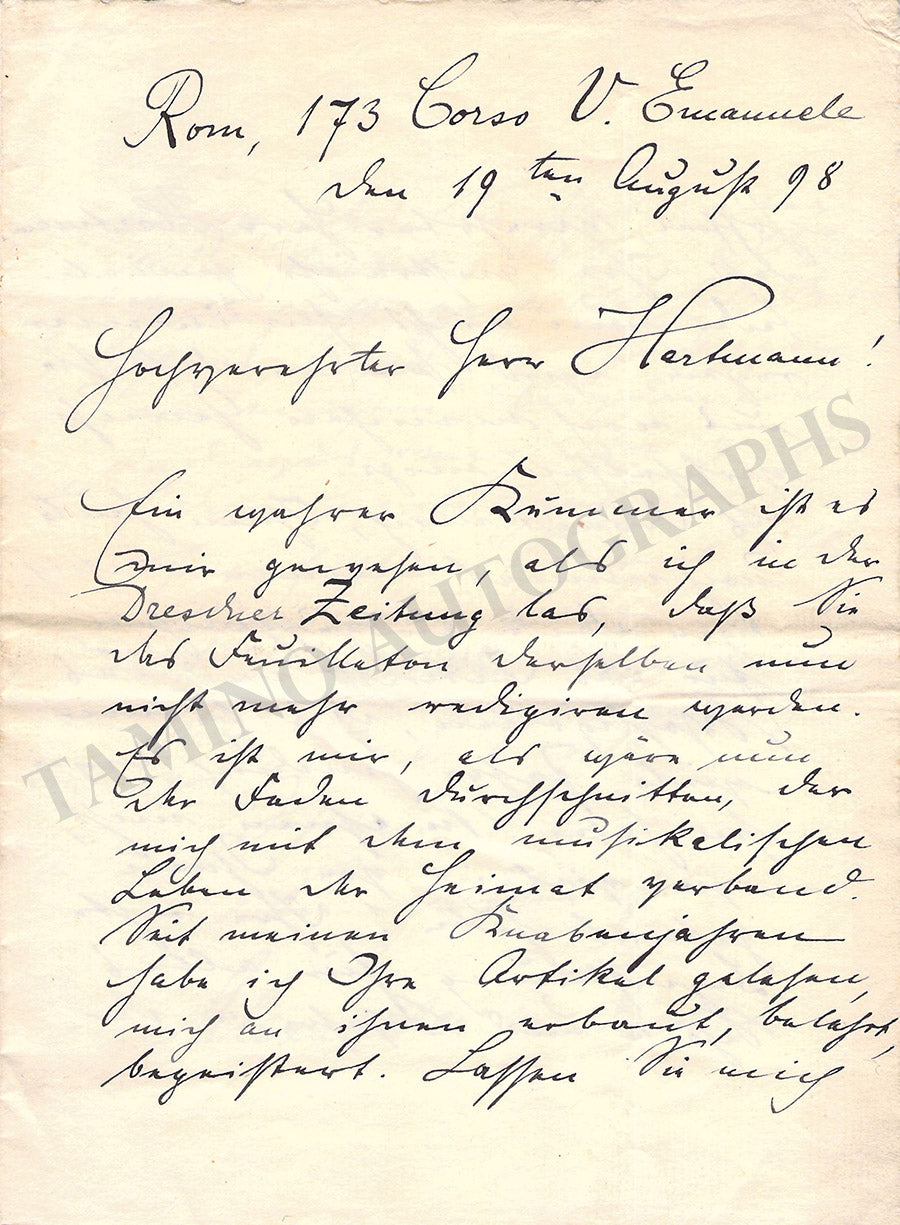 Rom, 173 Corso V. Emanuele
den 19ten August 98
Hochverehrter Herr Hartmann!
Ein wahrer Kummer ist es
mir gewesen, als ich in der
Dresdner Zeitung las, daß Sie
das Feuilleton derselben nun
nicht mehr redigiren werden.
Es ist mir, als wäre nun
der Faden durchschnitten, der
mich mit dem musikalischen
Leben der Heimat verband.
Seit meinen Knabenjahren
habe ich Ihre Artikel gelesen,
mich an ihnen erbaut, belehrt,
begeistert. Lassen Sie mich
TAMINO AUTOGRAPHS